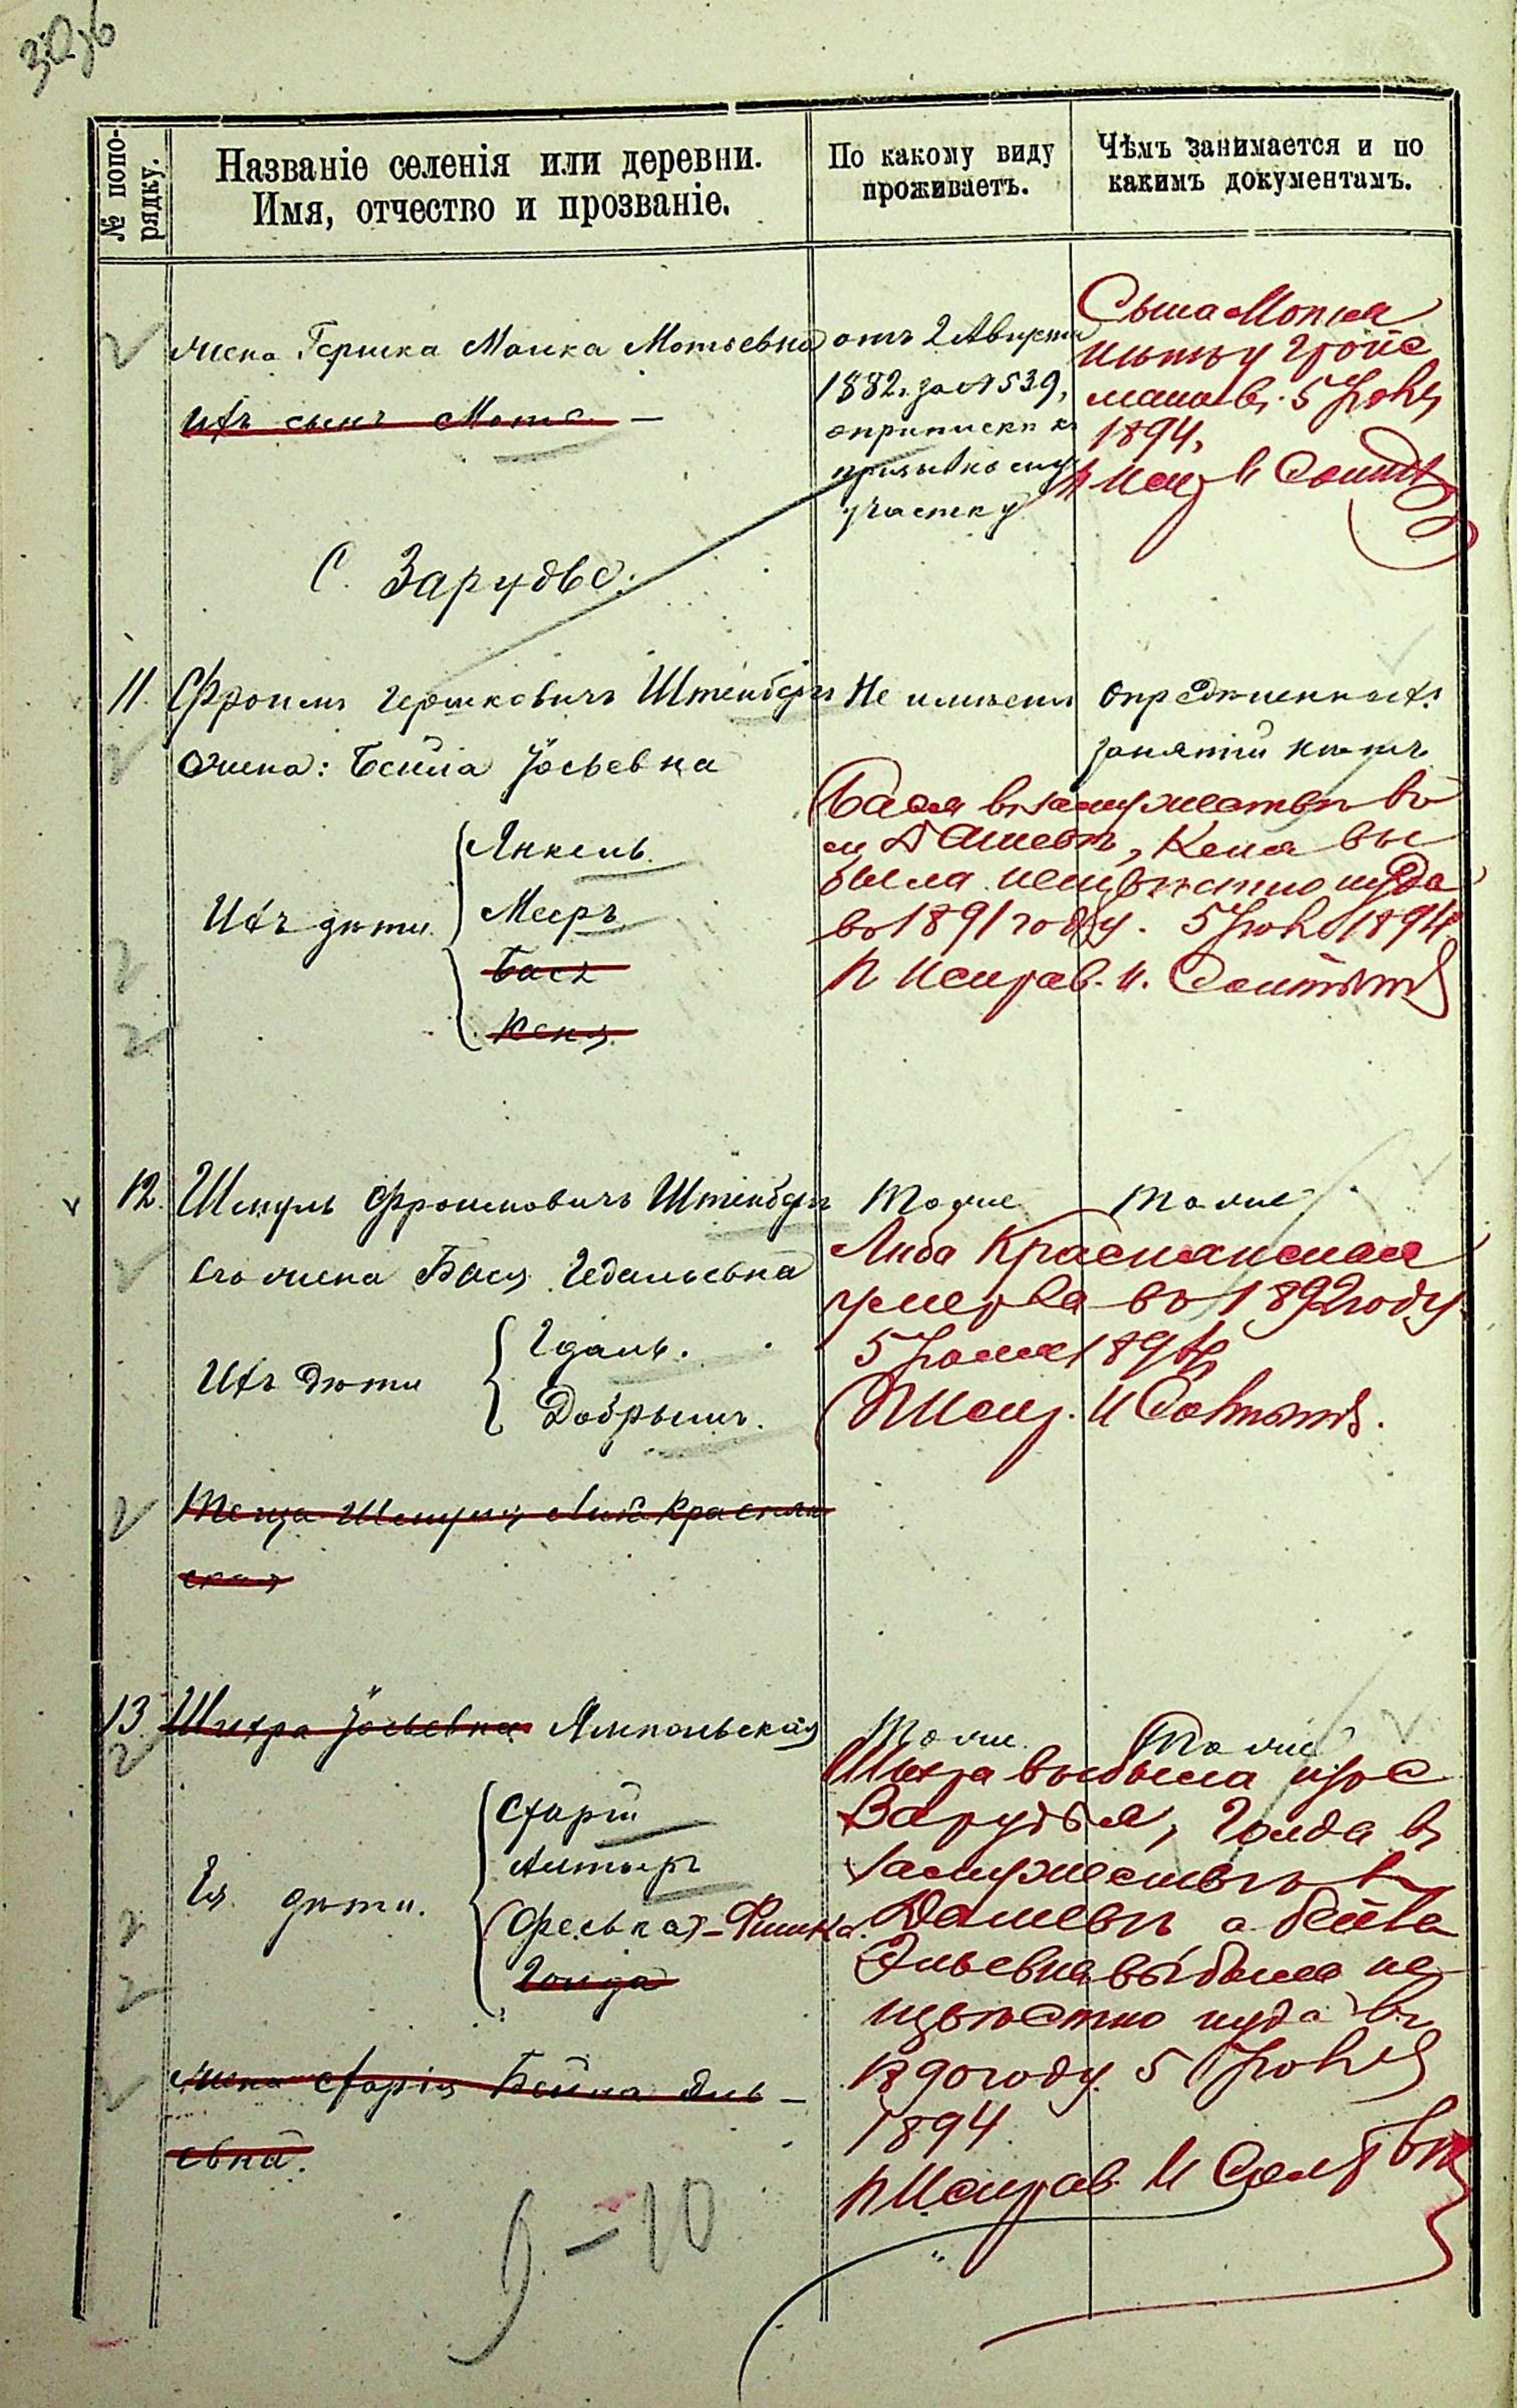 № попо-
рядку.
Названіе селенія или деревни.
Имя, отчество и прозваніе.
По какому виду
проживаетъ.
Чѣмъ занимается и по
какимъ документамъ.
жена Гершка Малка Мотьевна
Ихъ сынъ Мотя —
отъ 2 Августа
1882 г. за № 539,
о припискѣ къ
призывному
участку
Сына
5 Іюня
1894,
С. Зарудье.
11. Фроимъ Гершковичъ Штенбергъ
Жена: Бейла Іосьевна
Ихъ дѣти
Янкель
Мееръ
Бася
Кеня
Не имѣетъ
опредѣленныхъ
занятій нѣтъ
Бася въ замужествѣ въ
м. Дашевѣ, Кеня вы
была неизвѣстно куда
въ 1891 году. 5 Іюня 1894
12. Шмуль Фроимовичъ Штенбергъ
Его жена Бася Гедальевна
Ихъ дѣти
Гдаль.
Добрышъ.
Теща Шмуля Либа Краснян
ская
Тоже
Тоже
Либа Краснянская
умерла въ 1892 году.
5 Іюня 1894
13 Шифра Іосьевна Ямпольская
Ея дѣти.
Хапій
Фейька - Фишка.
Голда
жена Бейла Эль —
евна.
Тоже
Тоже
выбыла изъ с
Зарудья, Голда въ
замужествѣ въ
Дашевѣ а Бейла
Эльевна выбыла не
извѣстно куда въ
1890 году. 5 Іюня
1894
9-10